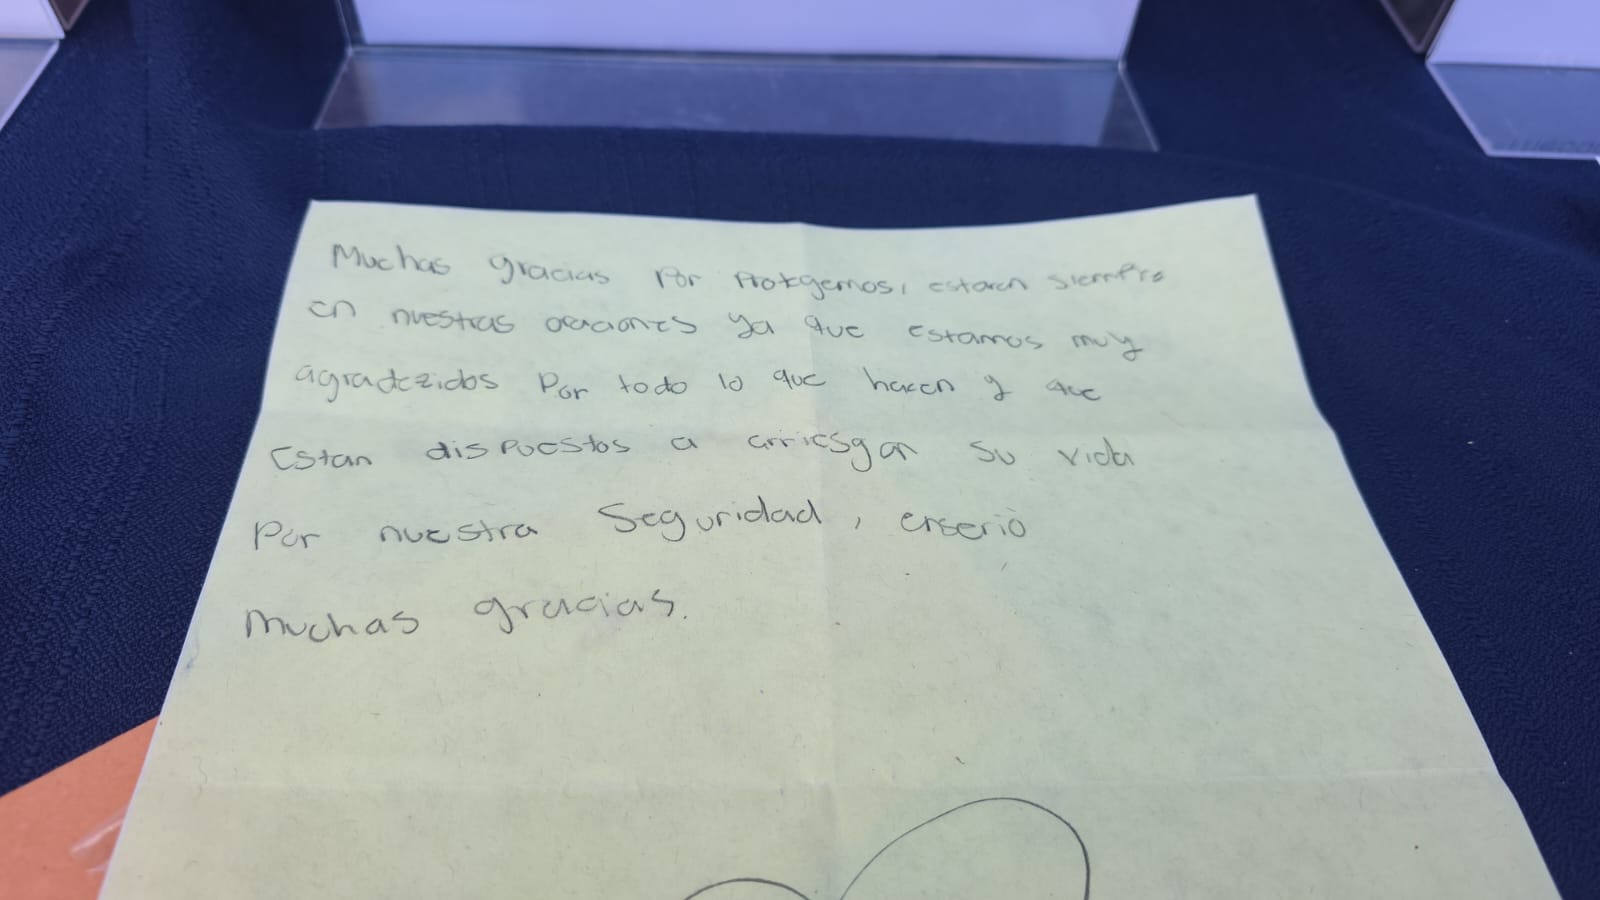 Muchas gracias por protegernos, estaren siempre
en nuestras oraciones ya que estamos muy
agradezidos por todo lo que hacen y que
Estan dispuestos a arriesgar su vida
por nuestra Seguridad, enserio
Muchas gracias.